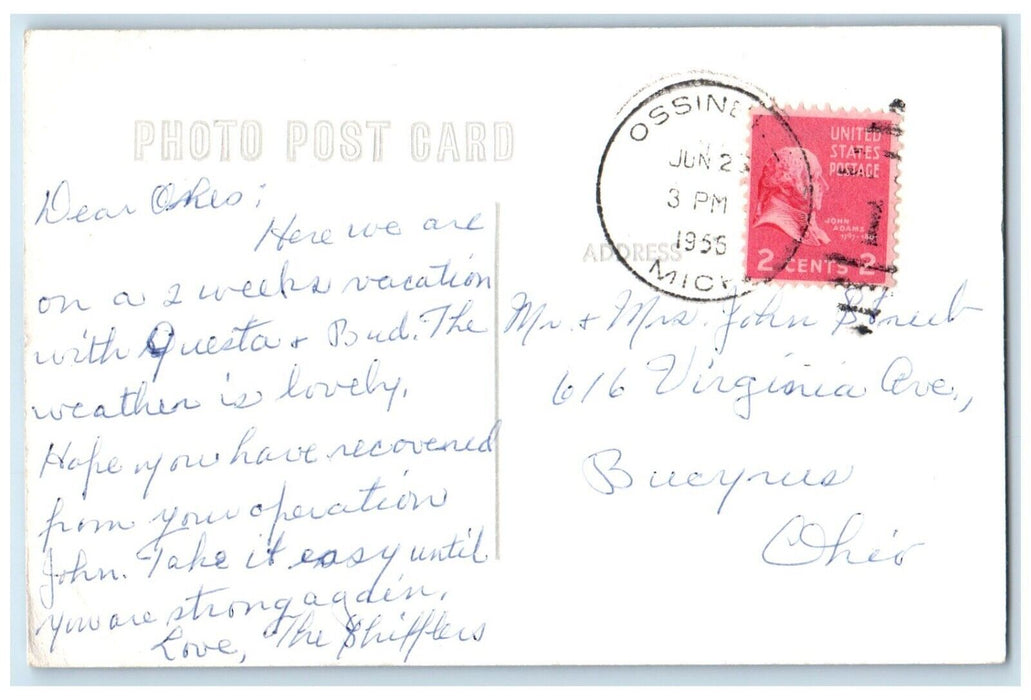 PHOTO POST CARD
Dear Okes:
Here we are
on a 2 weeks vacation
with Questa + Bud. The
weather is lovely.
Hope you have recovered
from your operation
John. Take it easy until
you are strong again.
Love, The Shifflers
OSSINE
JUN 23
3 PM
1955
MICH
UNITED
STATES
POSTAGE
JOHN
ADAMS
2 CENTS 2
ADDRESS
Mr. + Mrs. John Streib
616 Virginia Ave.,
Bucyrus
Ohio